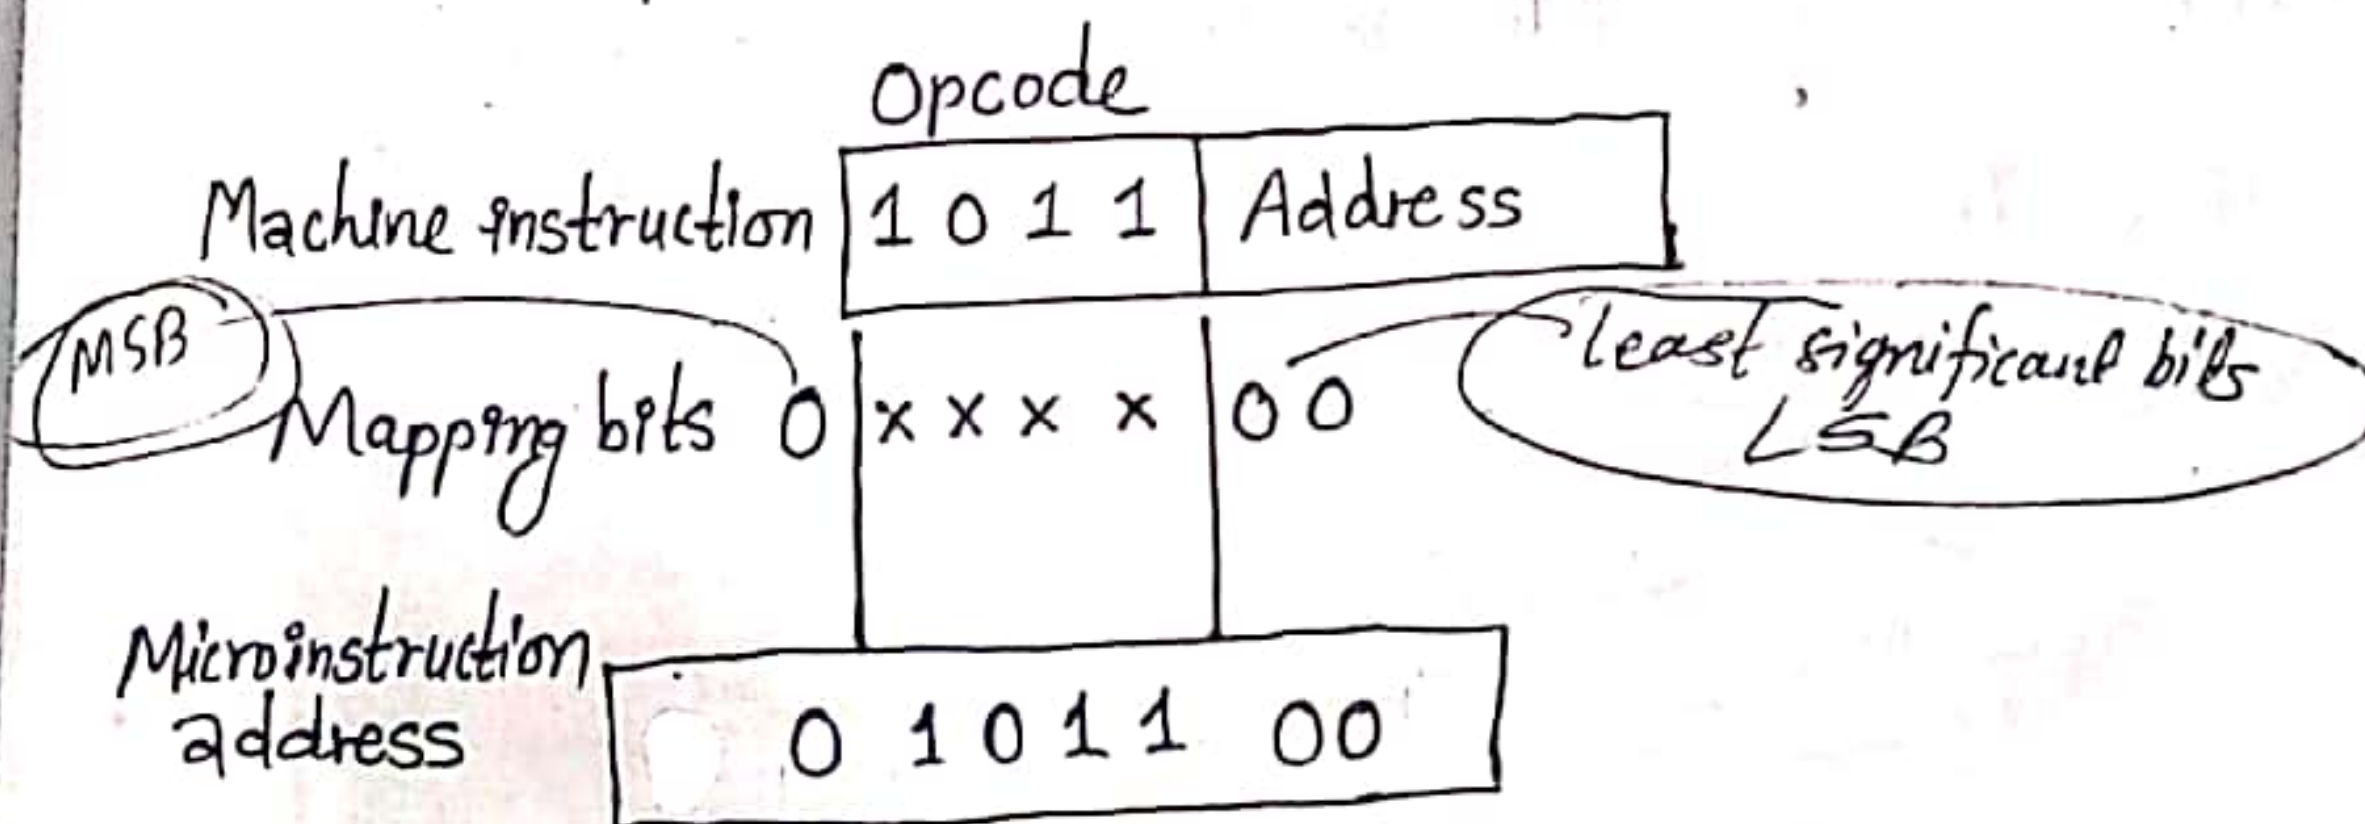 Opcode
Machine instruction 1 0 1 1 Address
MSB
Mapping bits 0 x x x x 00
least significant bits
LSB
Microinstruction
address
0 1 0 1 1 00